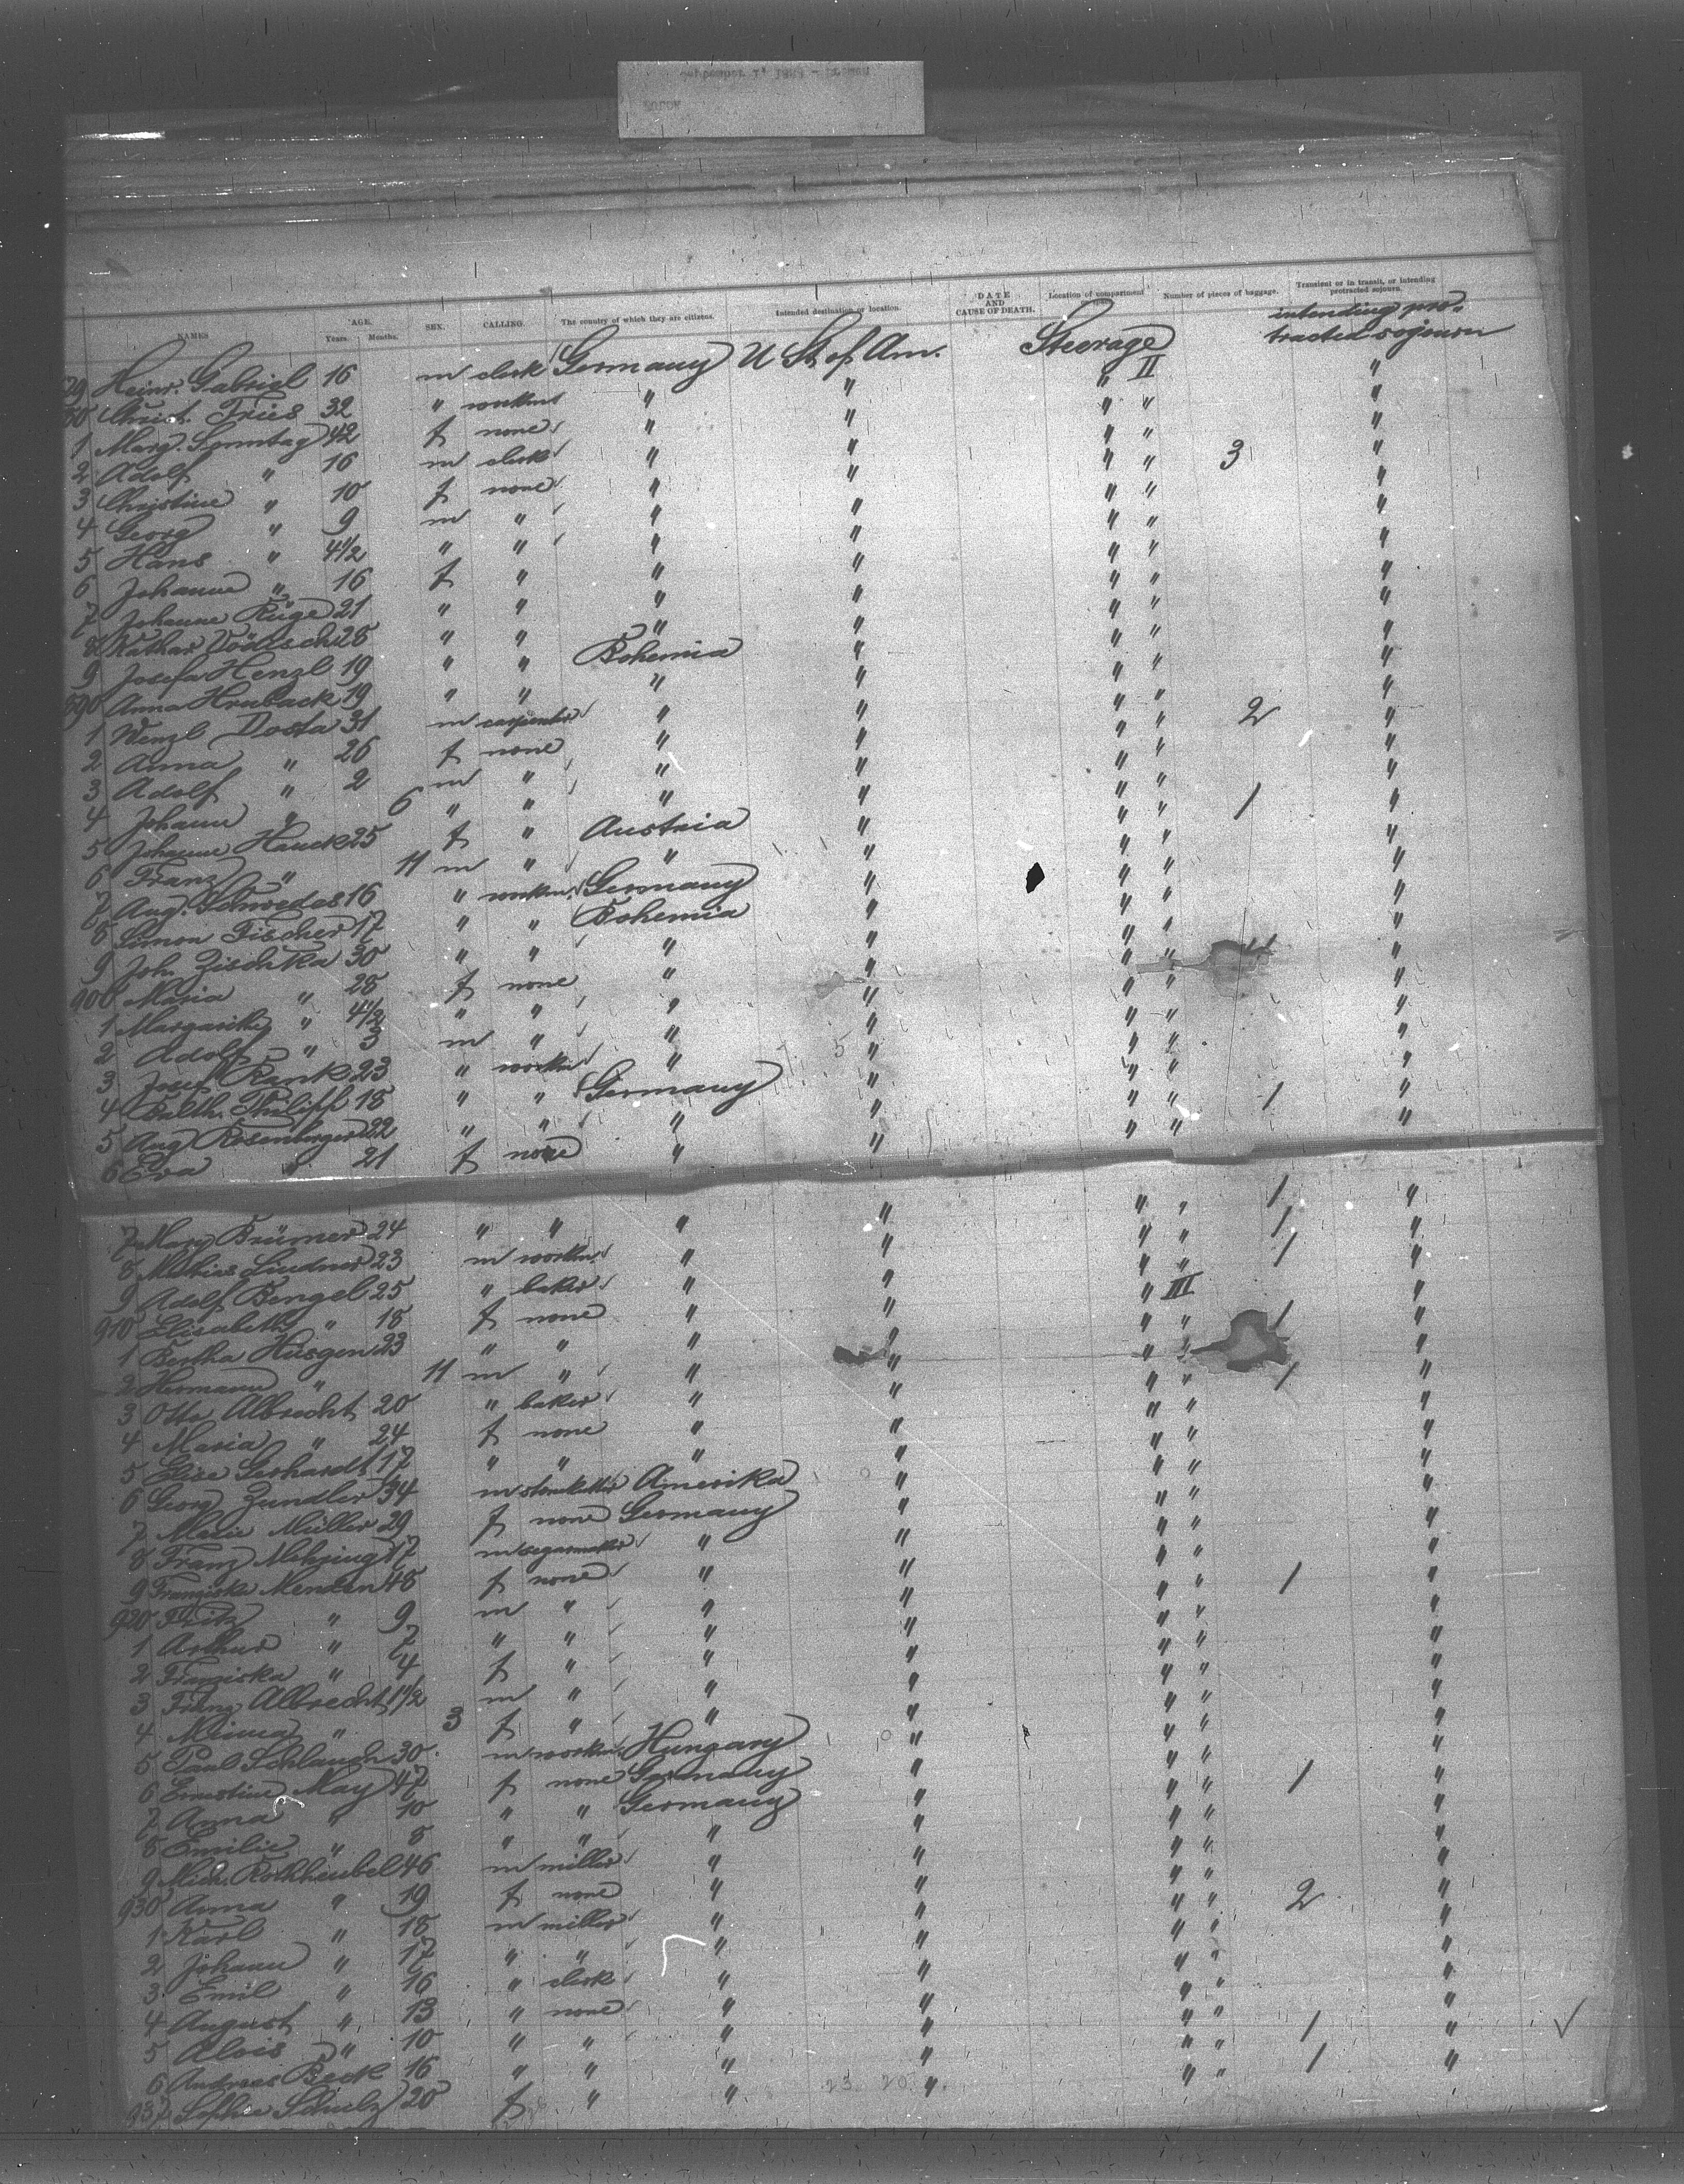 NAMES AGE. Years. Months. SEX. CALLING. The country of which they are citizens. Intended destination or location. DATE AND CAUSE OF DEATH. Location of compartment Number of pieces of baggage. Transient or in transit, or intending protracted sojourn.
79 Heinr. Gabriel 16 m clerk Germany U St. of Am. Steerage II intending protracted sojourn
80 Christ. Fries 32 " workm " " " " "
1 Marg. Sonntag 42 f none " " " " "
2 Adolf " 16 m clerk " " " " 3 "
3 Christine " 10 f none " " " " "
4 Georg " 9 m " " " " " "
5 Hans " 4 1/2 " " " " " " "
6 Johanne " 16 f " " " " " "
7 Johanne Rüge 21 " " " " " " "
8 Kathar 28 " " " " " " "
9 Josefa Henzl 19 " " Bohemia " " " "
890 Anna Hruback 19 " " " " " " "
1 Wenzl Dosta 31 m carpenter " " " " 2 "
2 Anna " 26 f none " " " " "
3 Adolf " 2 m " " " " " "
4 Johann " 6 " " " " " " "
5 Johanne Hauck 25 f " Austria " " " 1 "
6 Franz " 11 m " " " " " "
7 Aug. Schwedes 16 " workm. Germany " " " "
8 Simon Fischer 17 " " Bohemia " " " "
9 Joh. Zischka 30 " " " " " " "
900 Maria " 28 f none " " " " "
1 Margarethe " 4 1/2 " " " " " " "
2 Adolf " 3 m " " " " " "
3 Josef Rank 23 " workm " " " " "
4 Balth. Philipp 18 " " Germany " " " 1 "
5 Aug Rosenberger 22 " " " " " " "
6 Eva " 21 f none " " " " "
7 Marg Brümer 24 " " " " " " 1 "
8 Mathias Lindner 23 m workm. " " " " 1 "
9 Adolf Bengel 25 " baker " " " III 1 "
910 Elisabeth " 18 f none " " " " "
1 Bertha Hüsgen 23 " " " " " " 1 "
2 Hermann " 11 m " " " " " "
3 Otto Albrecht 20 " baker " " " " 1 "
4 Maria " 24 f none " " " " "
5 Elise Gerhardt 17 " " " " " " "
6 Georg Zundler 34 m Amerika " " " "
7 Marie Müller 29 f none Germany " " " "
8 Franz Mehring 17 m segarmaker " " " " "
9 Franziska Menzen 48 f none " " " " 1 "
920 Fritz " 9 m " " " " " "
1 Arthur " 7 " " " " " " "
2 Franziska " 4 f " " " " " "
3 Franz Albrecht 1 1/2 m " " " " " "
4 Minna " 3 f " " " " " "
5 Paul Schlauch 30 m workm. Hungary " " " "
6 Ernestine May 47 f none Germany " " " 1 "
7 Anna " 10 " " Germany " " " "
8 Emilie " 8 " " " " " " "
9 Mich. Rothheubel 46 m miller " " " " "
930 Anna " 19 f none " " " " 2 "
1 Karl " 18 m miller " " " " "
2 Johann " 17 " " " " " " "
3 Emil " 16 " clerk " " " " "
4 August " 13 " none " " " " "
5 Alois " 10 " " " " " " "
6 Andreas Beck 16 " " " " " " 1 "
937 Sophie Schulz 20 f " " " " " 1 "